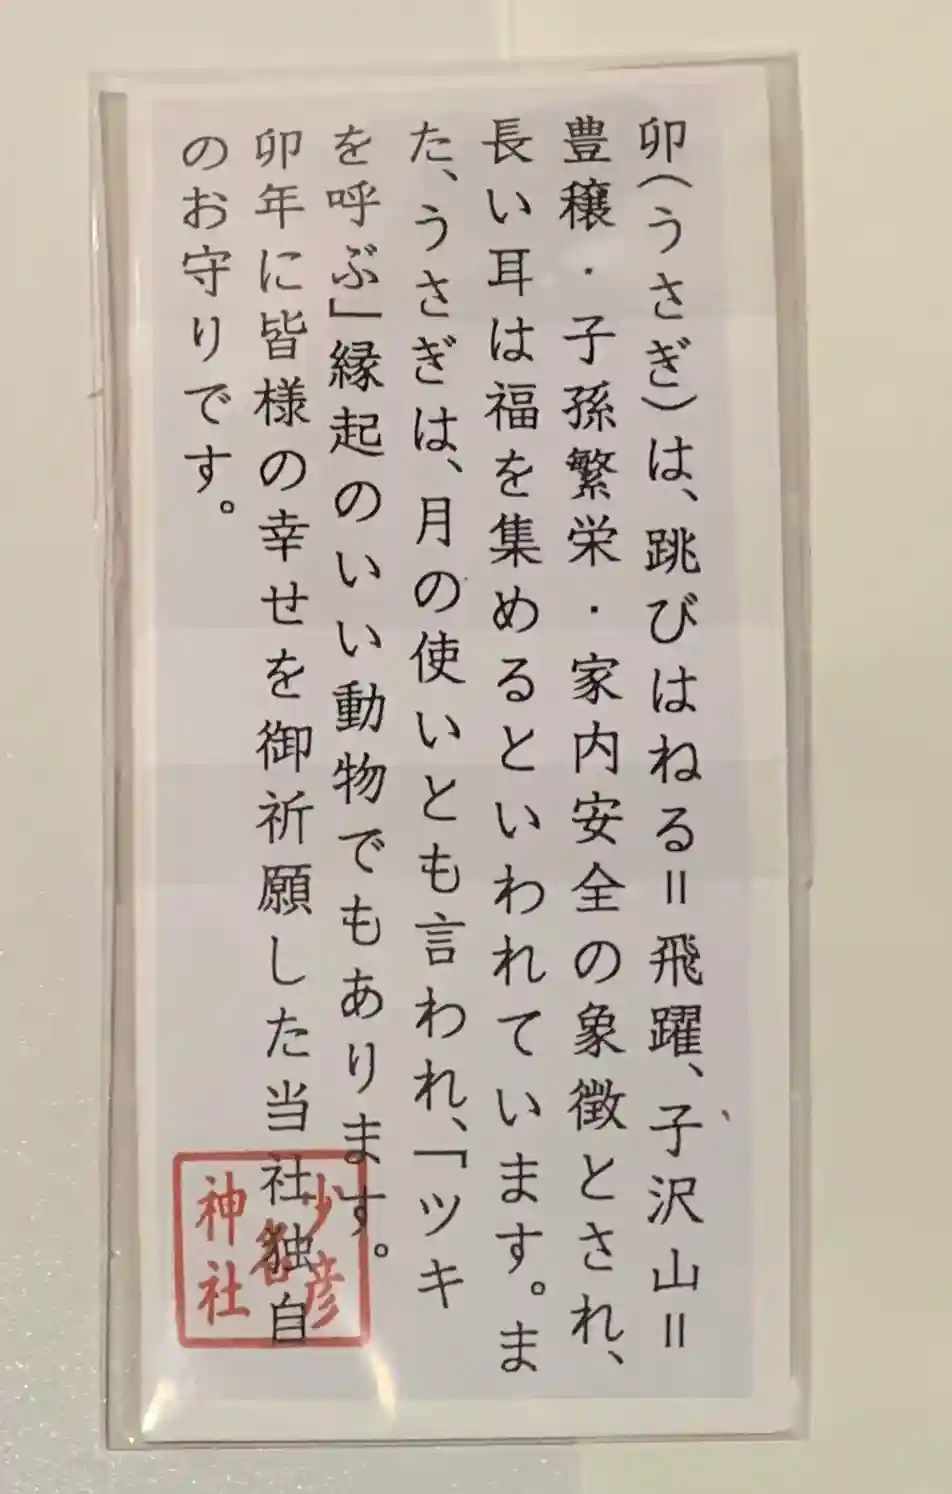 卯(うさぎ)は、跳びはねる＝飛躍、子沢山＝
豊穣・子孫繁栄・家内安全の象徴とされ、
長い耳は福を集めるといわれています。ま
た、うさぎは、月の使いとも言われ、「ツキ
を呼ぶ」縁起のいい動物でもあります。
卯年に皆様の幸せを御祈願した当社独自
のお守りです。
少彦
名
神社